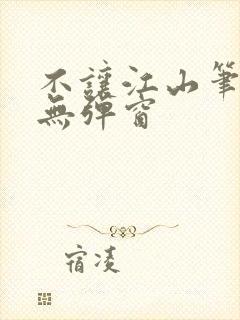 不讓江山筆
無彈窗
宿淩